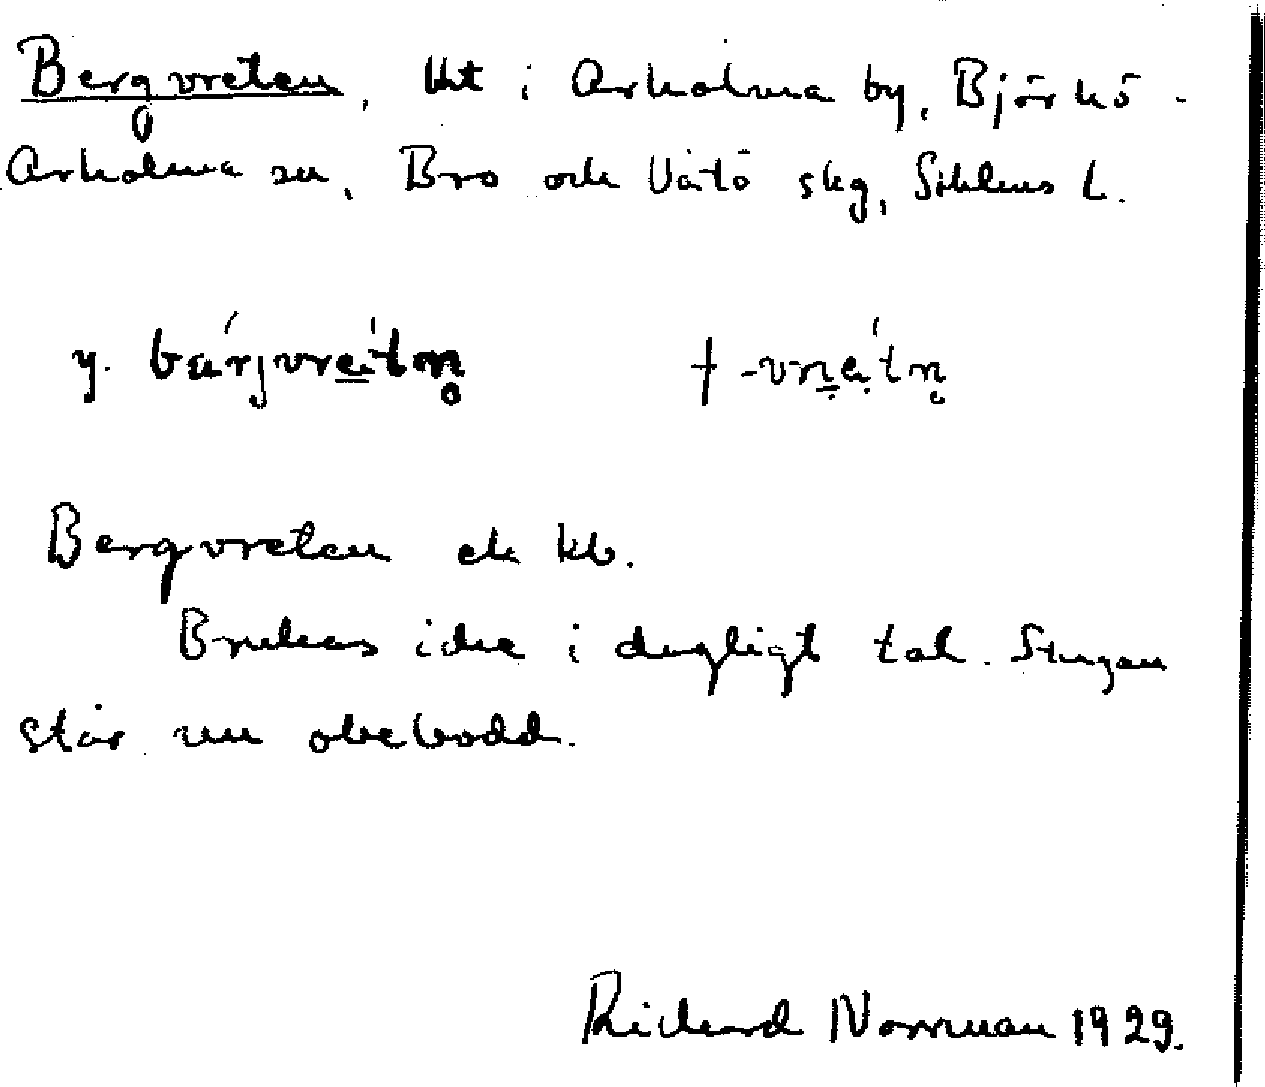 Bergvreten, lht i Arholma by, Björkö-
Arholma sn, Bro och Vätö skg, Sthlms L.
y. bárjvreitn̥ † -vreitn̥
Bergvreten ek kb.
Brukas icke i dagligt tal. Stugan
står nu obebodd.
Richard Norrman 1929.